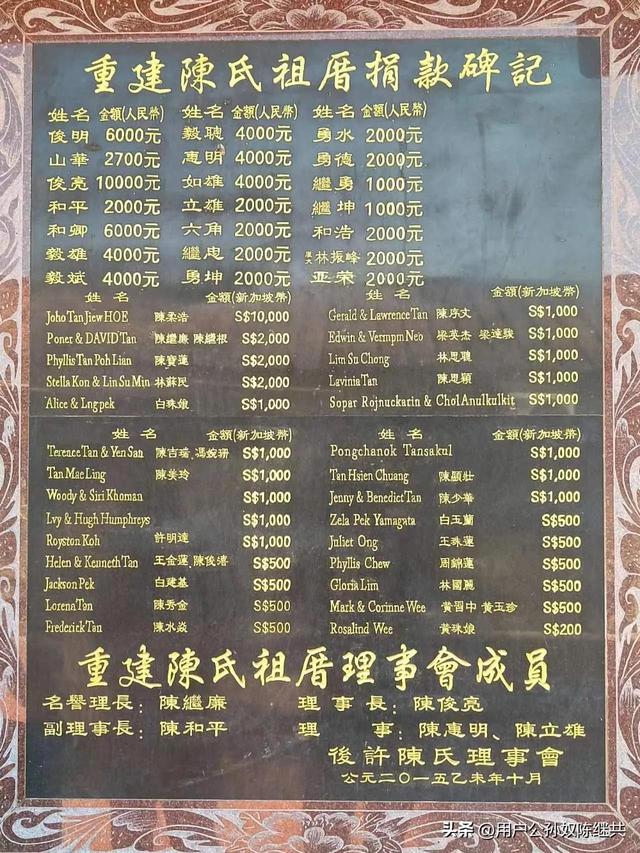 重建陳氏祖厝捐款碑記
姓名 金額(人民幣) 姓名 金額(人民幣) 姓名 金額(人民幣)
俊明 6000元 毅聰 4000元 勇水 2000元
山華 2700元 惠明 4000元 勇德 2000元
俊亮 10000元 如雄 4000元 繼勇 1000元
和平 2000元 立雄 2000元 繼坤 1000元
和卿 6000元 六角 2000元 和浩 2000元
毅雄 4000元 繼忠 2000元 林振峰 2000元
毅斌 4000元 勇坤 2000元 亚荣 2000元
姓名 金額(新加坡幣) 姓名 金額(新加坡幣)
Joho Tan Jiew HOE 陳柔浩 S$10,000 Gerald & Lawrence Tan 陳序文 S$1,000
Poner & DAVID Tan 陳繼廉 陳繼根 S$2,000 Edwin & Vermpm Neo 梁英杰 梁達駿 S$1,000
Phyllis Tan Poh Lian 陳寶蓮 S$2,000 Lim Su Chong 林思聰 S$1,000
Stella Kon & Lin Su Min 林蘇民 S$2,000 Lavinia Tan 陳思穎 S$1,000
Alice & Lng pek 白珠娘 S$1,000 Sopar Rojnuckarin & Chol Anulkulkit S$1,000
姓名 金額(新加坡幣) 姓名 金額(新加坡幣)
Terence Tan & Yen San 陳吉瑞 馮婉珊 S$1,000 Pongchanok Tansakul S$1,000
Tan Mae Ling 陳美玲 S$1,000 Tan Hsien Chuang 陳顯壯 S$1,000
Woody & Siri Khoman S$1,000 Jenny & Benedict Tan 陳少華 S$1,000
Lvy & Hugh Humphreys S$1,000 Zela Pek Yamagata 白玉蘭 S$500
Royston Koh 許明達 S$1,000 Juliet Ong 王珠蓮 S$500
Helen & Kenneth Tan 王金蓮 陳俊濤 S$500 Phyllis Chew 周錦蓮 S$500
Jackson Pek 白建基 S$500 Gloria Lim 林國麗 S$500
Lorena Tan 陳秀金 S$500 Mark & Corinne Wee 黃習中 黃玉珍 S$500
Frederick Tan 陳水焱 S$500 Rosalind Wee 黃珠娘 S$200
重建陳氏祖厝理事會成員
名譽理長：陳繼廉 理事長：陳俊亮
副理事長：陳和平 理事：陳惠明、陳立雄
後許陳氏理事會
公元二〇一五乙未年十月
头条 @用户公孙奴陈继共